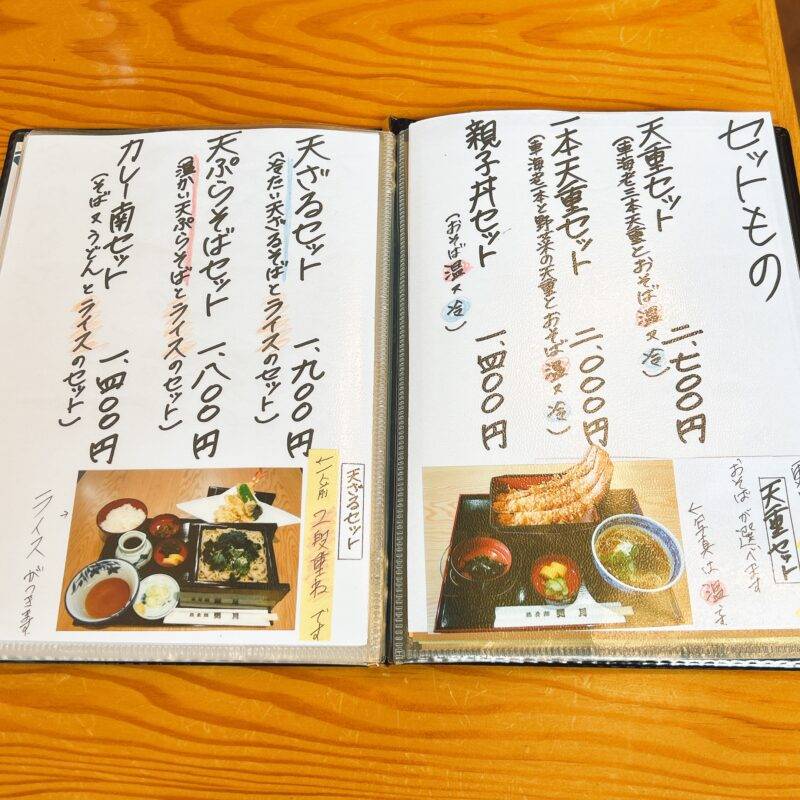 セットもの
天重セット
(車海老三本天重とおそば温又冷)
二、七〇〇円
一本天重セット
(車海老一本と野菜の天重とおそば温又冷)
二、〇〇〇円
親子丼セット
(おそば温又冷)
一、四〇〇円
天重セット
おそばが選べます
写真は温
天ざるセット
(冷たい天ざるそばとライスのセット)
一、九〇〇円
天ぷらそばセット
(温かい天ぷらそばとライスのセット)
一、八〇〇円
カレー南セット
(そば又うどんとライスのセット)
一、四〇〇円
天ざるセット
2段重ねです
ライスがつきます